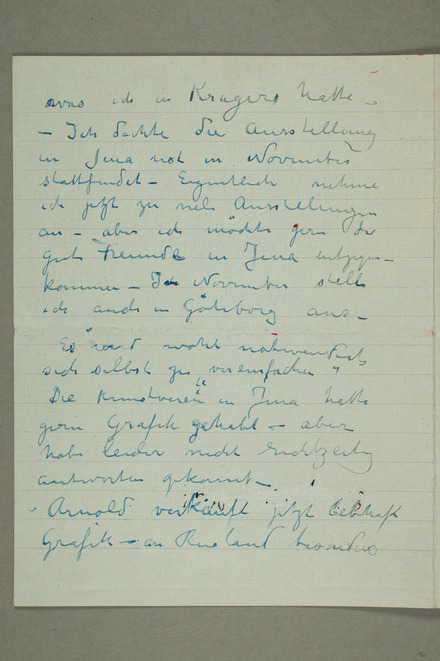 was ich in Kragerø hatte –
– Ich dachte die Ausstellung
in Jena not in November
stattfindet – Eigentlich nehme
ich jetzt zu viele Ausstellungen
an – aber ich möchte gern die
gute Freunde in Jena entgegen–
kommen – In November stelle
ich auch in Göteborg aus –
Es wird wohl notwendich
sich selbst zu vereinfachen
Die Kunstverein in Jena hatte
gern Grafik gehabt – aber
habe leider nicht rechtzeitig
antworten gekonnt –
Arnold verkauft jetzt lebhaft
Grafik – an Rusland